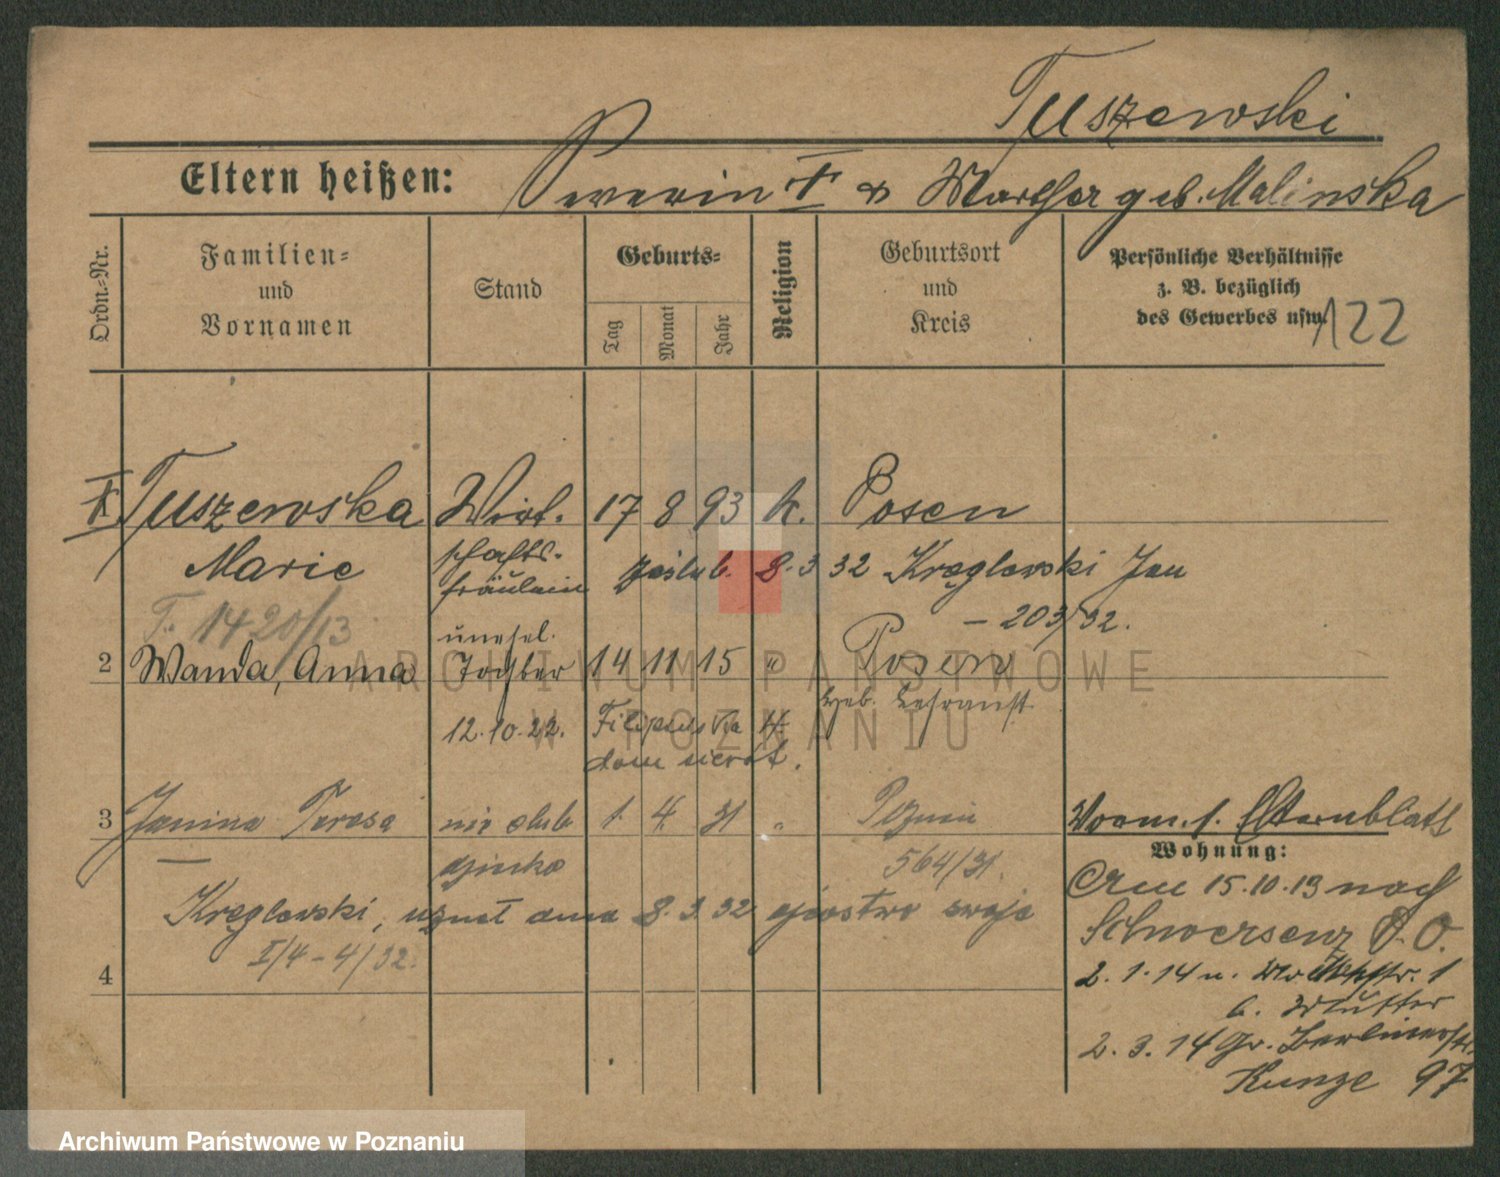 Tuszewski
Eltern heißen: Severin † & Martha geb. Malinska
Ordn.-Nr.
Familien- und Vornamen
Stand
Geburts-
Tag
Monat
Jahr
Religion
Geburtsort und Kreis
Persönliche Verhältnisse
z. B. bezüglich
des Gewerbes usw.
122
Tuszewska Wirt- 17 8 93 k. Posen
Marie schafts-
fräulein zaślub. 8.3 32 Kręglewski Jan
T. 1420/13 - 203/32.
unehel.
2 Wanda, Anna Tochter 14 11 15 " Posen
12.10.22. Filipińska
dom sierót.
3 Janina Teresa nieślub 1. 4. 31 " Poznań
dziecko 564/31.
Kręglewski, uznał dnia 8.3.32 ojcostwo swoje
I/4 - 4/32.
4
Vorm. s. Elternblatt
Wohnung:
Am 15.10.13 nach
Schwersenz P. O.
2.1.14 1
b. Mutter
2.3.14 Gr. Berlinerstr.
Kunze 97
ARCHIWUM PAŃSTWOWE
W POZNANIU
Archiwum Państwowe w Poznaniu